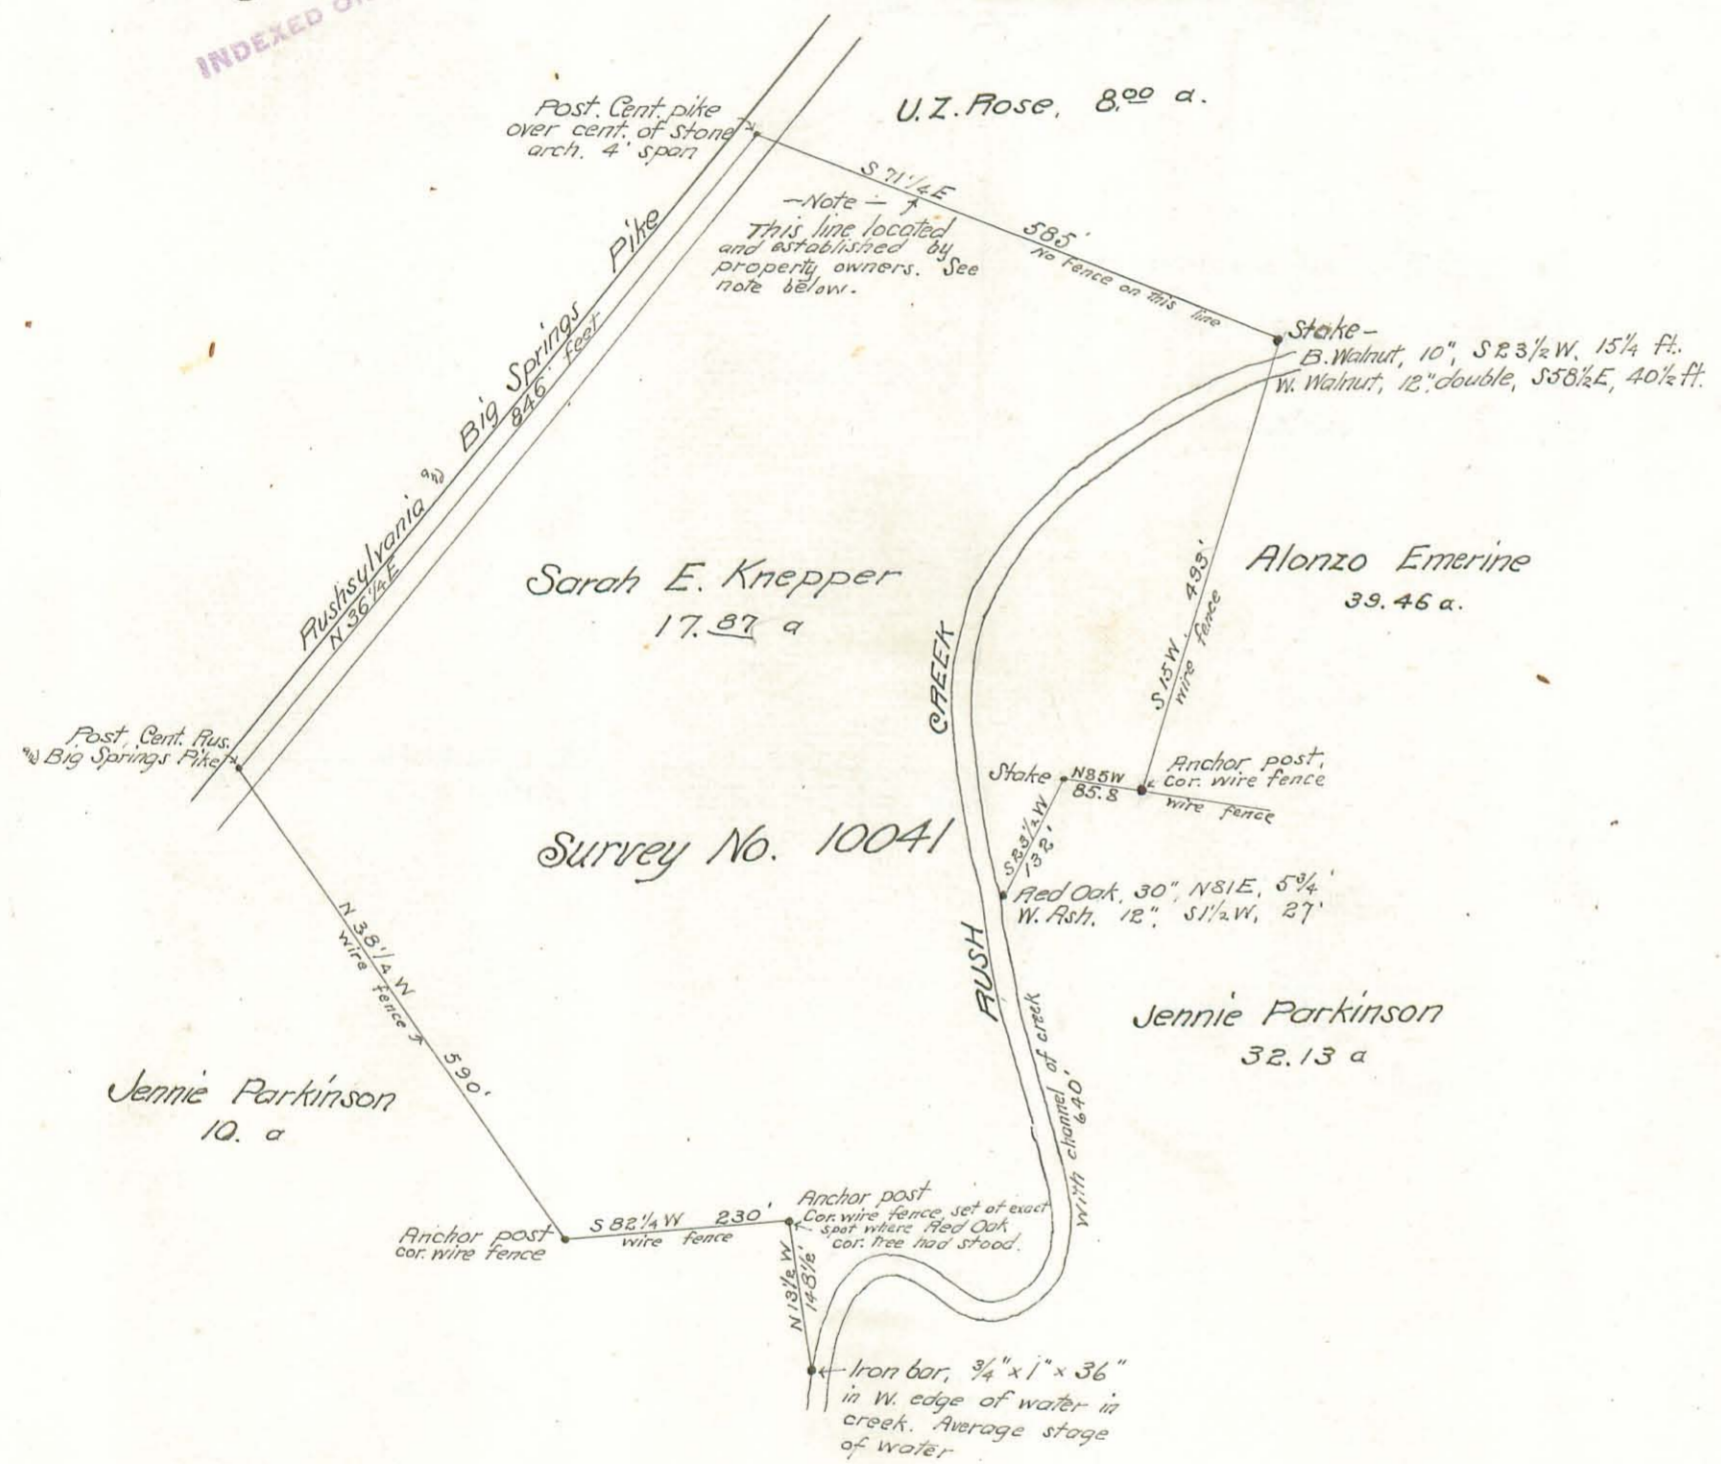 INDEXED
Post. Cent. pike
over cent. of stone
arch. 4' span
U.Z. Rose, 8.00 a.
S 71 1/4 E
585'
No fence on this line
—Note—
This line located
and established by
property owners. See
note below.
Stake—
B. Walnut, 10", S 23 1/2 W, 15 1/4 ft.
W. Walnut, 12" double, S58 1/2 E, 40 1/2 ft.
Rushsylvania and Big Springs Pike
N 36 1/4 E
846 feet
Sarah E. Knepper
17.87 a
Alonzo Emerine
39.46 a.
S 15 W. 493'
wire fence
CREEK
Post, Cent. Rus.
and Big Springs Pike
Stake
N85W
85.8
Anchor post,
cor. wire fence
wire fence
S23 1/2 W
132'
Survey No. 10041
Red Oak, 30", N81E, 5 3/4'
W. Ash, 12", S1 1/2 W, 27'
RUSH
N 38 1/4 W
wire fence
590'
with channel of creek
640'
Jennie Parkinson
32.13 a
Jennie Parkinson
10. a
Anchor post
cor. wire fence
S 82 1/4 W 230'
wire fence
Anchor post
Cor. wire fence, set at exact
spot where Red Oak
cor. tree had stood.
N 13 1/2 W
148 1/2'
Iron bar, 3/4" x 1" x 36"
in W. edge of water in
creek. Average stage
of water